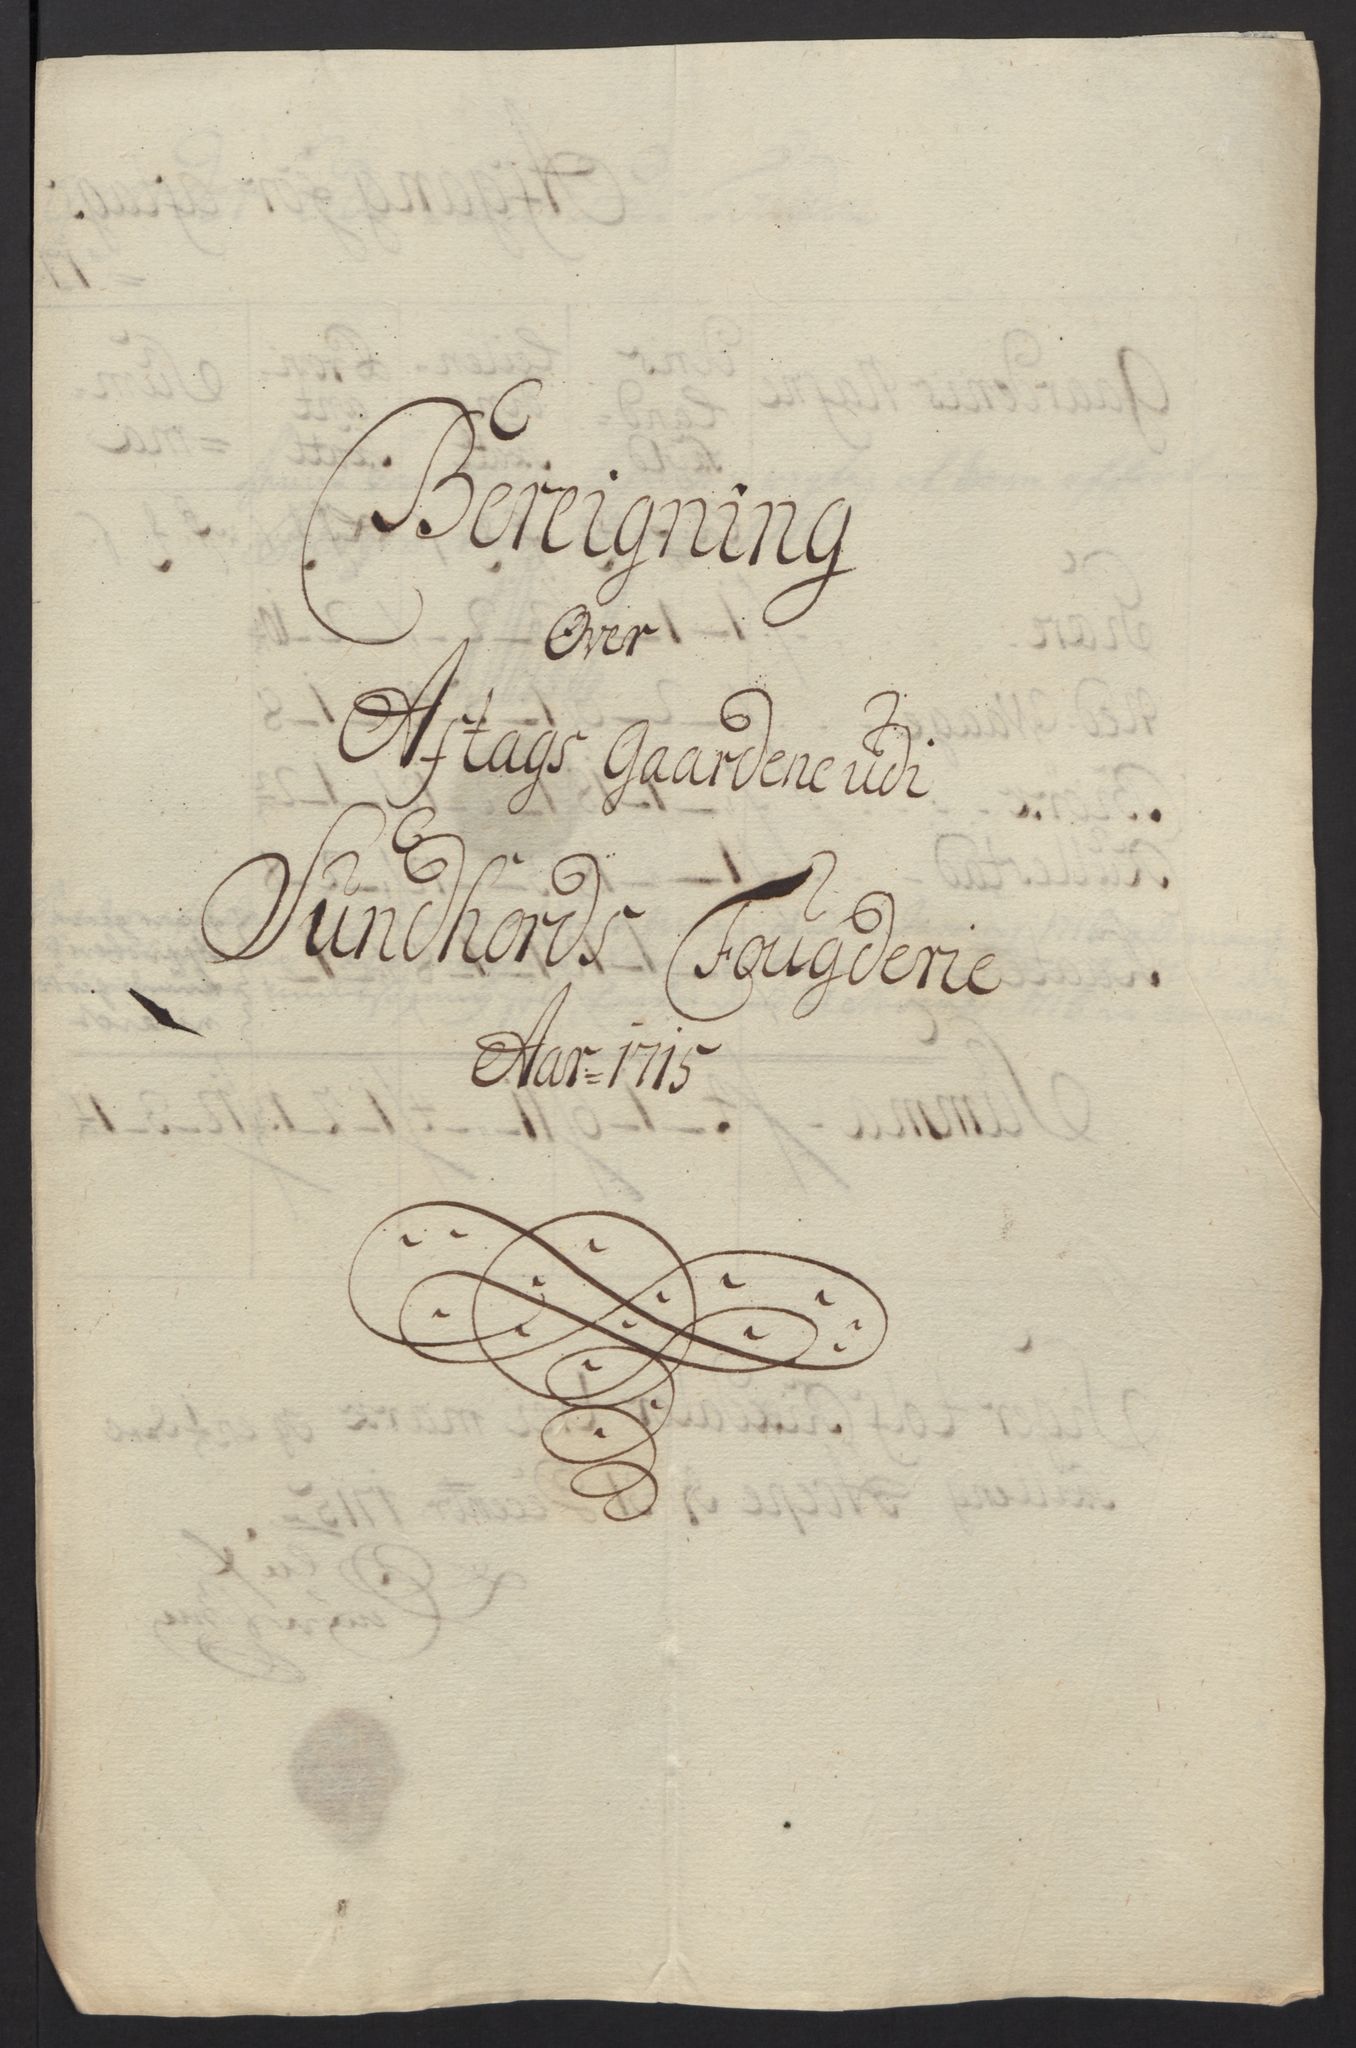 Bereigning
Over
Aftags Gaardene udi
Sundhords Fougderie
Aar = 1715